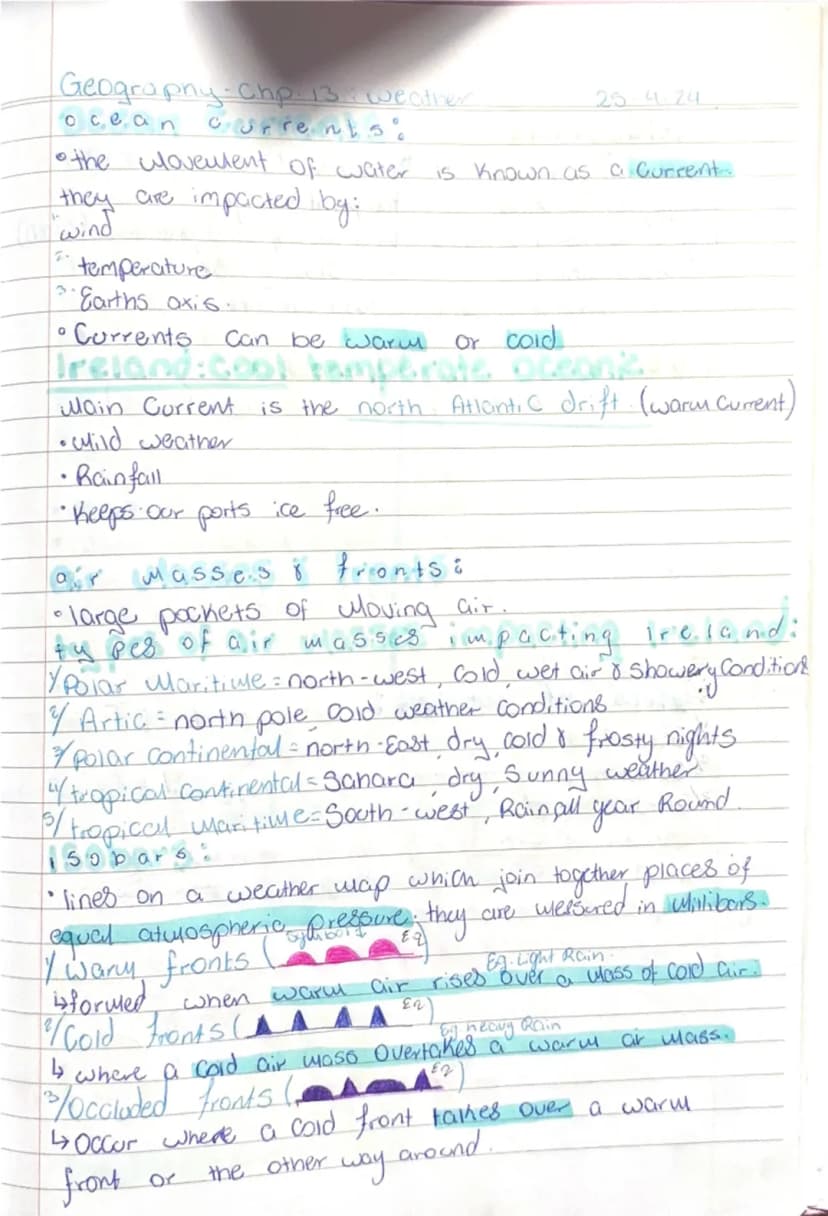 Geography - Chp. 13: weather 25.4.24
ocean currents:
• the movement of water is known as a current.
they are impacted by:
1. wind
2. temperature
3. Earths axis.
• Currents can be warm or cold
Ireland: Cool temperate oceanic
Main Current is the north Atlantic drift (warm current)
• Mild weather
• Rainfall
• Keeps our ports ice free.
air masses & fronts:
• large pockets of moving air.
types of air masses impacting ireland:
1/ Polar Maritime = north-west, Cold, wet air & showery Conditions
2/ Artic = north pole, cold weather conditions
3/ Polar continental = north-East, dry, cold & frosty nights
4/ tropical continental = Sahara, dry, Sunny weather
5/ tropical maritime = South-west, Rain all year Round.
isobars:
• lines on a weather map which join together places of
equal atmospheric pressure. they are measured in Millibars.
1/ warm fronts (symbols Eg)
Eg. Light Rain.
↳ formed when warm air rises over a mass of cold air.
2/ Cold fronts ( Eg)
Eg heavy Rain
↳ where a cold air mass overtakes a warm air mass.
3/ Occluded fronts ( Eg)
↳ Occur where a cold front takes over a warm
front or the other way around.